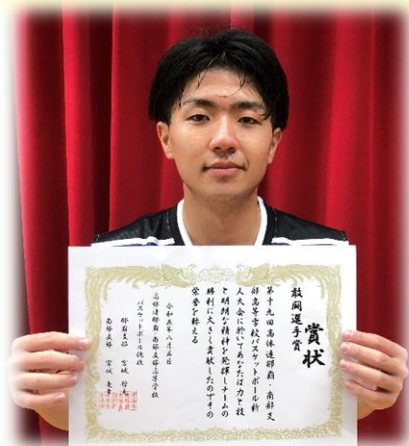 賞状
敢闘選手賞
第十九回高体連那覇・南部支
部高等学校バスケットボール新
人大会に於いてあなたは力と技
と明朗な精神を発揮しチームの
勝利に大きく貢献したのでその
栄誉を称える
令和五年八月五日
高体連那覇・南部支部高等学校
バスケットボール競技
那覇支部 宮城
南部支部 宮城